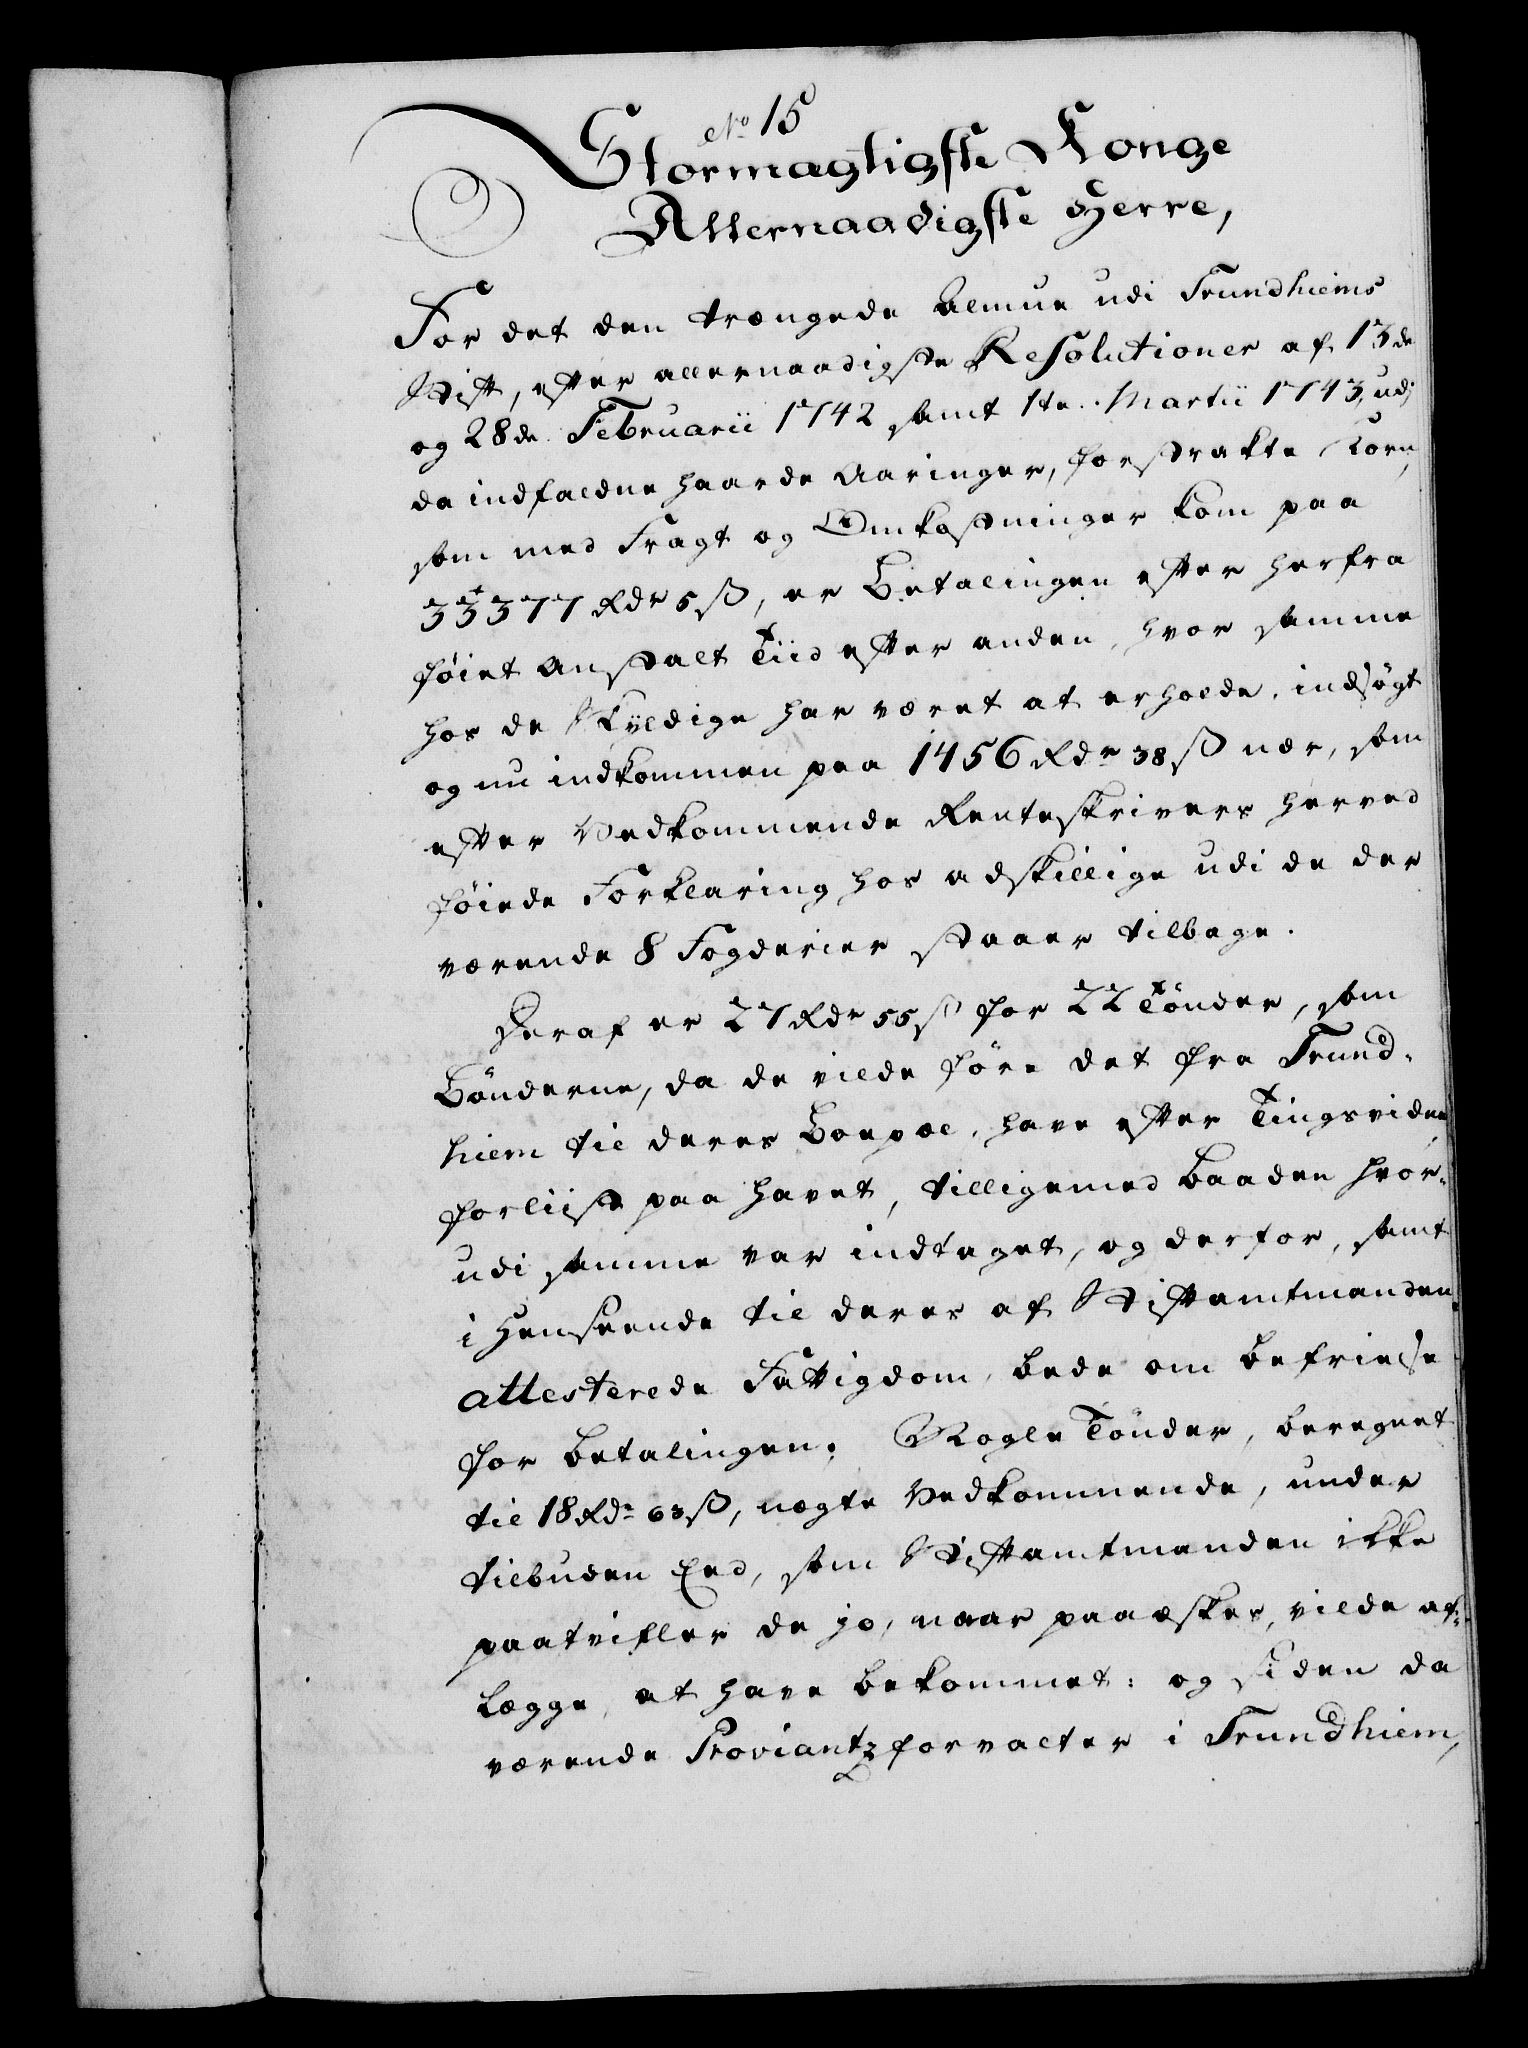 No 15
Stormagtigste Konge
Allernaadigste Herre,
For det den trængede Almue udi Trundhiems
Stift, efter allernaadigste Resolutioner af 13de
og 28de Februarii 1742 samt 1te. Martii 1743, udj
da indfaldne haarde Aaringer, forstrakte Korn,
som med Fragt og Omkostninger kom paa
33377 Rdr 5 ß, er Betalingen efter herfra
føiet Anstalt Tiid efter anden, hvor samme
hos de Skyldige har været at erholde, indsøgt
og nu indkommen paa 1456 Rdr 38 ß nær, som
efter Vedkommende Renteskrivers herved
føiede Forklaring hos adskillige udi de der
værende 8 Fogderier staaer tilbage.
Heraf er 27 Rdr 55 ß for 22 Tønder, som
Bønderne, da de vilde føre det fra Trund-
hiem til deres Boepæl, have efter Tingsvidne
forliist paa Havet, tilligemed Baaden hvor-
udi samme var indtaget, og derfor, samt
i Henseende til deres af Stiftamtmanden
attesterede Fattigdom, bede om befrielse
for betalingen. Nogle Tønder, beregnet
til 18 Rdr 63 ß, nægte Vedkommende, under
tilbuden Eed, som Stiftamtmanden ikke
paatvifler de jo, naar paaæskes, vilde af-
lægge, at have bekommet: og siden da
værende Proviantzforvalter i Trundhiem,